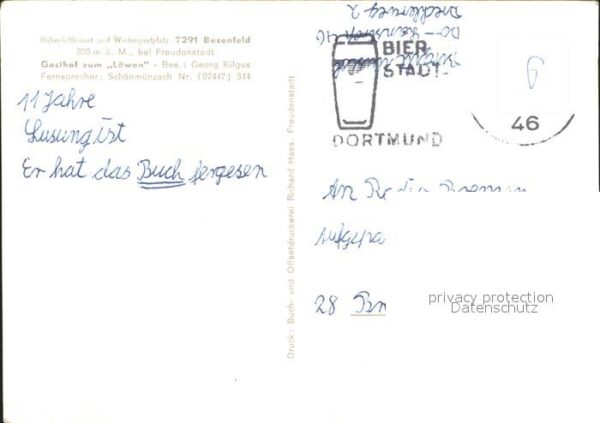 Höhenluftkurort und Wintersportplatz 7291 Besenfeld
800 m ü. M., bei Freudenstadt
Gasthof zum „Löwen" - Bes.: Georg Kilgus
Fernsprecher: Schönmünzach Nr. (07447) 344
11 Jahre
Lusung ist
Er hat das Buch fergesen
Druck: Buch- und Offsetdruckerei Richard Haas, Freudenstadt
BIER
STADT
DORTMUND
46
6
An Radio Bremen
28 Br
privacy protection
Datenschutz